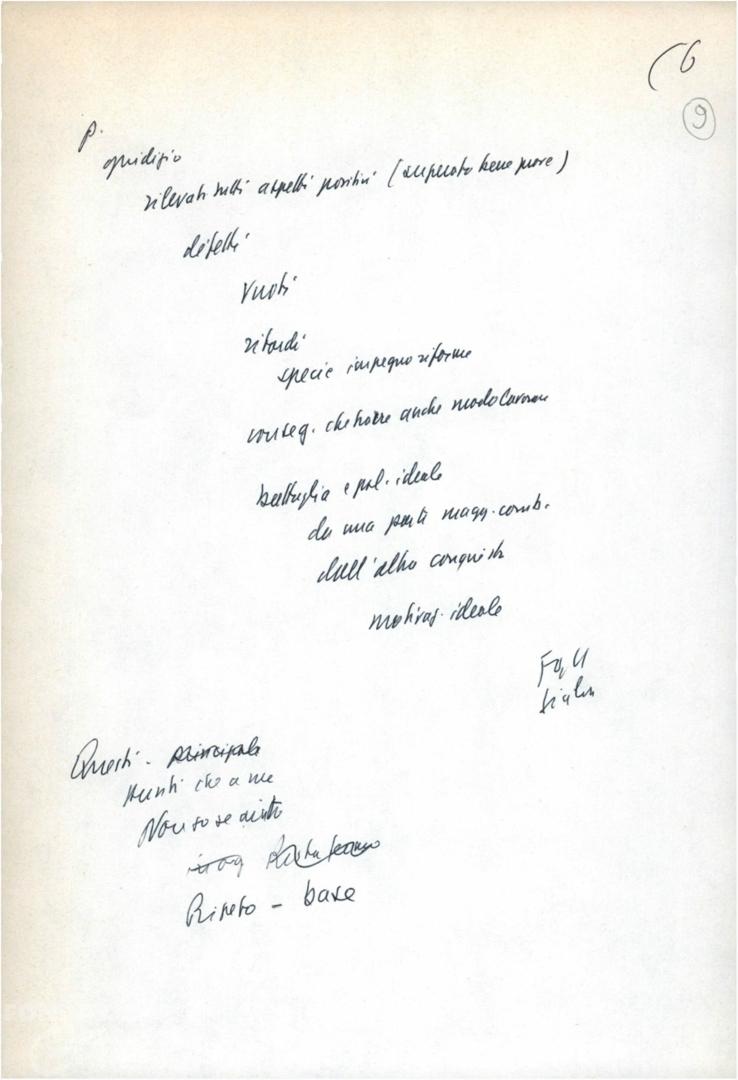 (6
9
p.
giudizio
rilevati tutti aspetti positivi (superato bene prove)
difetti
Vuoti
ritardi
specie impegno riforme
conseg. che trarre anche modo lavorare
battaglia e pol. ideale
da una parte magg. comb.
dall'altra conquista
motivaz. ideale
Questi - principale
punti che a me
Non so se
Ripeto - base